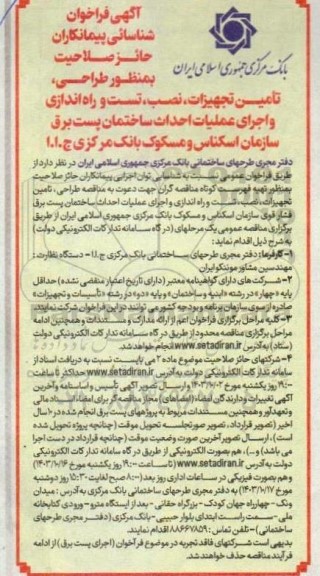 آگهی فراخوان
شناسائی پیمانکاران
حائز صلاحیت
بمنظور طراحی،
بانک مرکزی جمهوری اسلامی ایران
تأمین تجهیزات، نصب، تست و راه اندازی
و اجرای عملیات احداث ساختمان پست برق
سازمان اسکناس و مسکوک بانک مرکزی ج.ا.ا
دفتر مجری طرحهای ساختمانی بانک مرکزی جمهوری اسلامی ایران در نظر دارد از
طریق فراخوان عمومی نسبت به شناسایی توان اجرایی پیمانکاران حائز صلاحیت
بمنظور تهیه فهرست کوتاه مناقصه گران جهت دعوت به مناقصه طراحی، تامین
تجهیزات، نصب، تست و راه اندازی و اجرای عملیات احداث ساختمان پست برق
فشار قوی سازمان اسکناس و مسکوک بانک مرکزی جمهوری اسلامی ایران از طریق
برگزاری مناقصه عمومی یک مرحله‎ای (در گاه سامانه تدارکات الکترونیکی دولت)
به شرح ذیل اقدام نماید:
۱- کارفرما: دفتر مجری طرحهای ساختمانی بانک مرکزی ج.ا.ا - دستگاه نظارت:
مهندسین مشاور موننکو ایران
۲- شرکت‌های دارای گواهینامه معتبر (دارای تاریخ اعتبار منقضی نشده) حداقل
پایه «چهار» در رشته «ابنیه و ساختمان» و پایه «دو» در رشته «تأسیسات و تجهیزات»
صادره از سوی سازمان برنامه و بودجه کشور می توانند در این فراخوان شرکت نمایند.
۳- کلیه مراحل برگزاری فراخوان اعم از ارائه مدارک و مستندات و همچنین ادامه
مراحل برگزاری مناقصه محدود از طریق درگاه سامانه تدارکات الکترونیکی دولت
(ستاد) به آدرس www.setadiran.ir انجام خواهد شد.
۴- شرکتهای حائز صلاحیت موضوع ماده ۲ می بایست نسبت به دریافت اسناد از
سامانه تدارکات الکترونیکی دولت به آدرس www.setadiran.ir حداکثر تا ساعت
۱۹:۰۰ روز یکشنبه مورخ ۱۴۰۳/۱۰/۰۲ و ارسال تصویر آگهی تأسیس و اساسنامه و آخرین
آگهی تغییرات و دارندگان امضاء (امضاهای) مجاز مناقصه گر برای امضاء اسناد مالی
و تعهدآور و همچنین مستندات مربوط به پروژه‌های پست برق انجام شده در ۱۰ سال
اخیر (تصویر قرارداد، تصویر صورتجلسه تحویل موقت (چنانچه پروژه تحویل شده
است)، ارسال تصویر آخرین صورت وضعیت موقت (چنانچه قرارداد در دست اجرا
می باشد) و..)، هم بصورت الکترونیکی از طریق در گاه سامانه تدارکات الکترونیکی
دولت به آدرس www.setadiran.ir تا ساعت ۱۹:۰۰ روز یکشنبه مورخ ۱۴۰۳/۱۰/۱۶
و هم بصورت فیزیکی در ساعات اداری روز بعد (۸:۰۰ صبح لغایت ۱۵:۳۰ روز دوشنبه
مورخ ۱۴۰۳/۱۰/۱۷) به دفتر مجری طرحهای ساختمانی بانک مرکزی به آدرس: میدان
ونک - چهارراه جهان کودک - بزرگراه حقانی - بعد از ایستگاه مترو - ورودی کتابخانه
ملی - سمت راست ابتدای بلوار حبیبی - بانک مرکزی (دفتر مجری طرحهای
ساختمانی) - تلفن تماس: ۸۸۶۶۷۸۵۹ اقدام نمایند.
بدیهی است شرکتهای فاقد تجربه در موضوع فراخوان (اجرای پست برق) از ادامه
فرآیند مناقصه حذف خواهند شد.